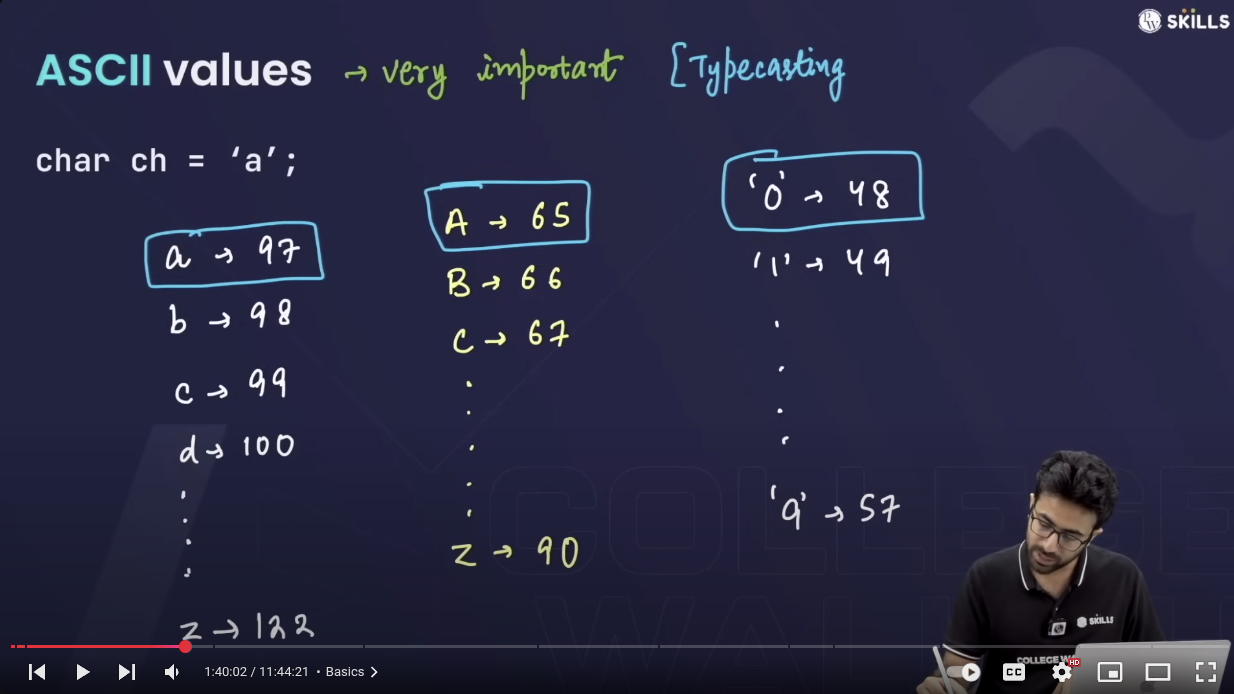 PW SKILLS
ASCII values → very important [Typecasting
char ch = ‘a’;
a → 97
b → 98
c → 99
d → 100
.
.
.
.
z → 122
A → 65
B → 66
C → 67
.
.
.
.
.
Z → 90
'0' → 48
'1' → 49
.
.
.
.
'9' → 57
COLLEGE
WALLAH
SKILLS
COLLEGE WA
1:40:02 / 11:44:21 • Basics >
CC
HD